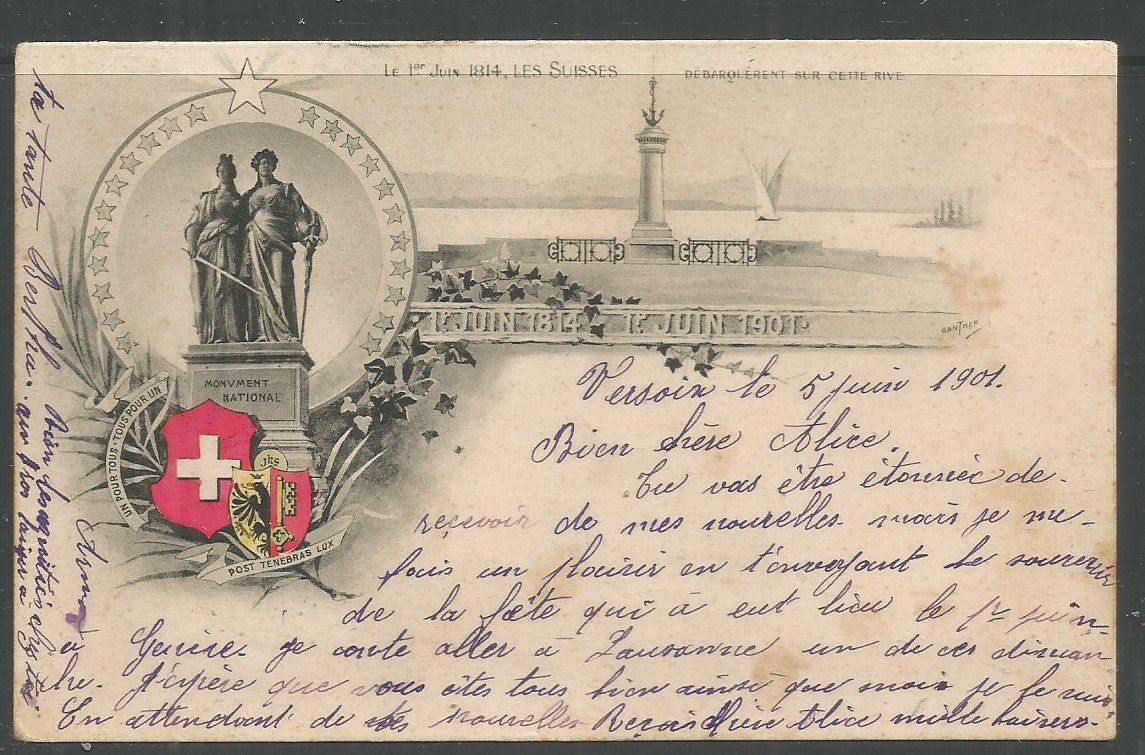 LE 1er JUIN 1814, LES SUISSES DÉBARQUÈRENT SUR CETTE RIVE
MONVMENT
NATIONAL
UN POUR TOUS · TOUS POUR UN
JHS
POST TENEBRAS LUX
1r JUIN 1814 1r JUIN 1901.
GANTNER
Versoix le 5 juin 1901.
Bien chère Alice.
Tu vas être étonnée de
reçevoir de mes nouvelles mais je me
fais un plaisir en t'envoyant le souvenir
de la fête qui à eut lieu le 1r juin
à Genève. je conte aller à Lausanne un de ces diman
che. J'éspère que vous êtes tous bien ainsi que moi je le suis
En attendant de tes nouvelles Reçois chère Alice mille baisers
ta tante Berthe.